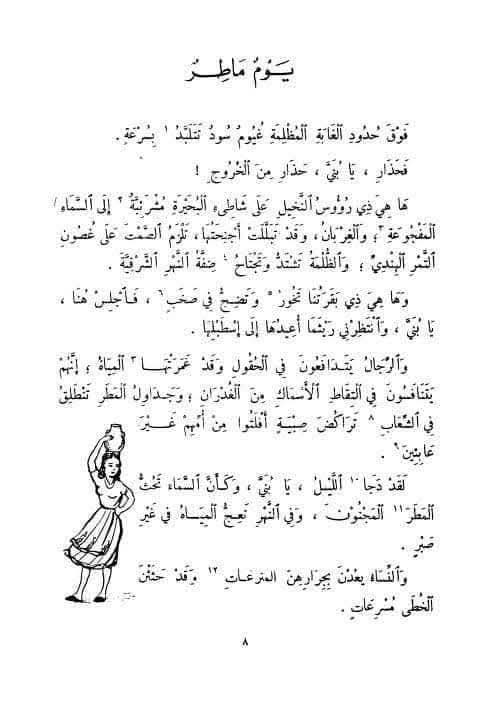 يَوْمٌ مَاطِرٌ
فَوْقَ حُدُودِ ٱلْغَابَةِ ٱلْمُظْلِمَةِ غُيُومٌ سُودٌ تَتَلَبَّدُ ١ بِسُرْعَةٍ .
فَحَذَارِ ، يَا بُنَيَّ ، حَذَارِ مِنَ ٱلْخُرُوجِ !
هَا هِيَ ذِي رُؤُوسُ ٱلنَّخِيلِ عَلَى شَاطِىءِ ٱلْبُحَيْرَةِ مُشْرَئِبَّةٌ ٢ إِلَى ٱلسَّمَاءِ
ٱلْمَفْجُوعَةِ ٣ ؛ وَٱلْغِرْبَانُ ، وَقَدْ تَبَلَّلَتْ أَجْنِحَتُهَا ، تَلْزَمُ ٱلصَّمْتَ عَلَى غُصُونِ
ٱلتَّمْرِ ٱلْهِنْدِيِّ ؛ وَٱلظُّلْمَةُ تَشْتَدُّ وَتَجْتَاحُ ٤ ضِفَّةَ ٱلنَّهْرِ ٱلشَّرْقِيَّةَ .
وَهَا هِيَ ذِي بَقَرَتُنَا تَخُورُ ٥ وَتَضِجُّ فِي صَخَبٍ ٦ ، فَٱجْلِسْ هُنَا ،
يَا بُنَيَّ ، وَٱنْتَظِرْنِي رَيْثَمَا أُعِيدُهَا إِلَى إِسْطَبْلِهَا .
وَٱلرِّجَالُ يَتَدَافَعُونَ فِي ٱلْحُقُولِ وَقَدْ غَمَرَتْهَا ٧ ٱلْمِيَاهُ ؛ إِنَّهُمْ
يَتَنَافَسُونَ فِي ٱلْتِقَاطِ ٱلْأَسْمَاكِ مِنَ ٱلْغُدْرَانِ ؛ وَجَدَاوِلُ ٱلْمَطَرِ تَنْطَلِقُ
فِي ٱلشِّعَابِ ٨ تَرَاكُضَ صِبْيَةٍ أَفْلَتُوا مِنْ أُمِّهِمْ غَيْرَ
عَابِئِينَ ٩ .
لَقَدْ دَجَا ١٠ ٱللَّيْلُ ، يَا بُنَيَّ ، وَكَأَنَّ ٱلسَّمَاءَ تَحُثُّ
ٱلْمَطَرَ ١١ ٱلْمَجْنُونَ ، وَفِي ٱلنَّهْرِ تَعِجُّ ٱلْمِيَاهُ فِي غَيْرِ
صَبْرٍ .
وَٱلنِّسَاءُ يَعُدْنَ بِجِرَارِهِنَّ المترعات ١٢ وَقَدْ حَثَثْنَ
ٱلْخُطَى مُسْرِعَاتٍ .
٨